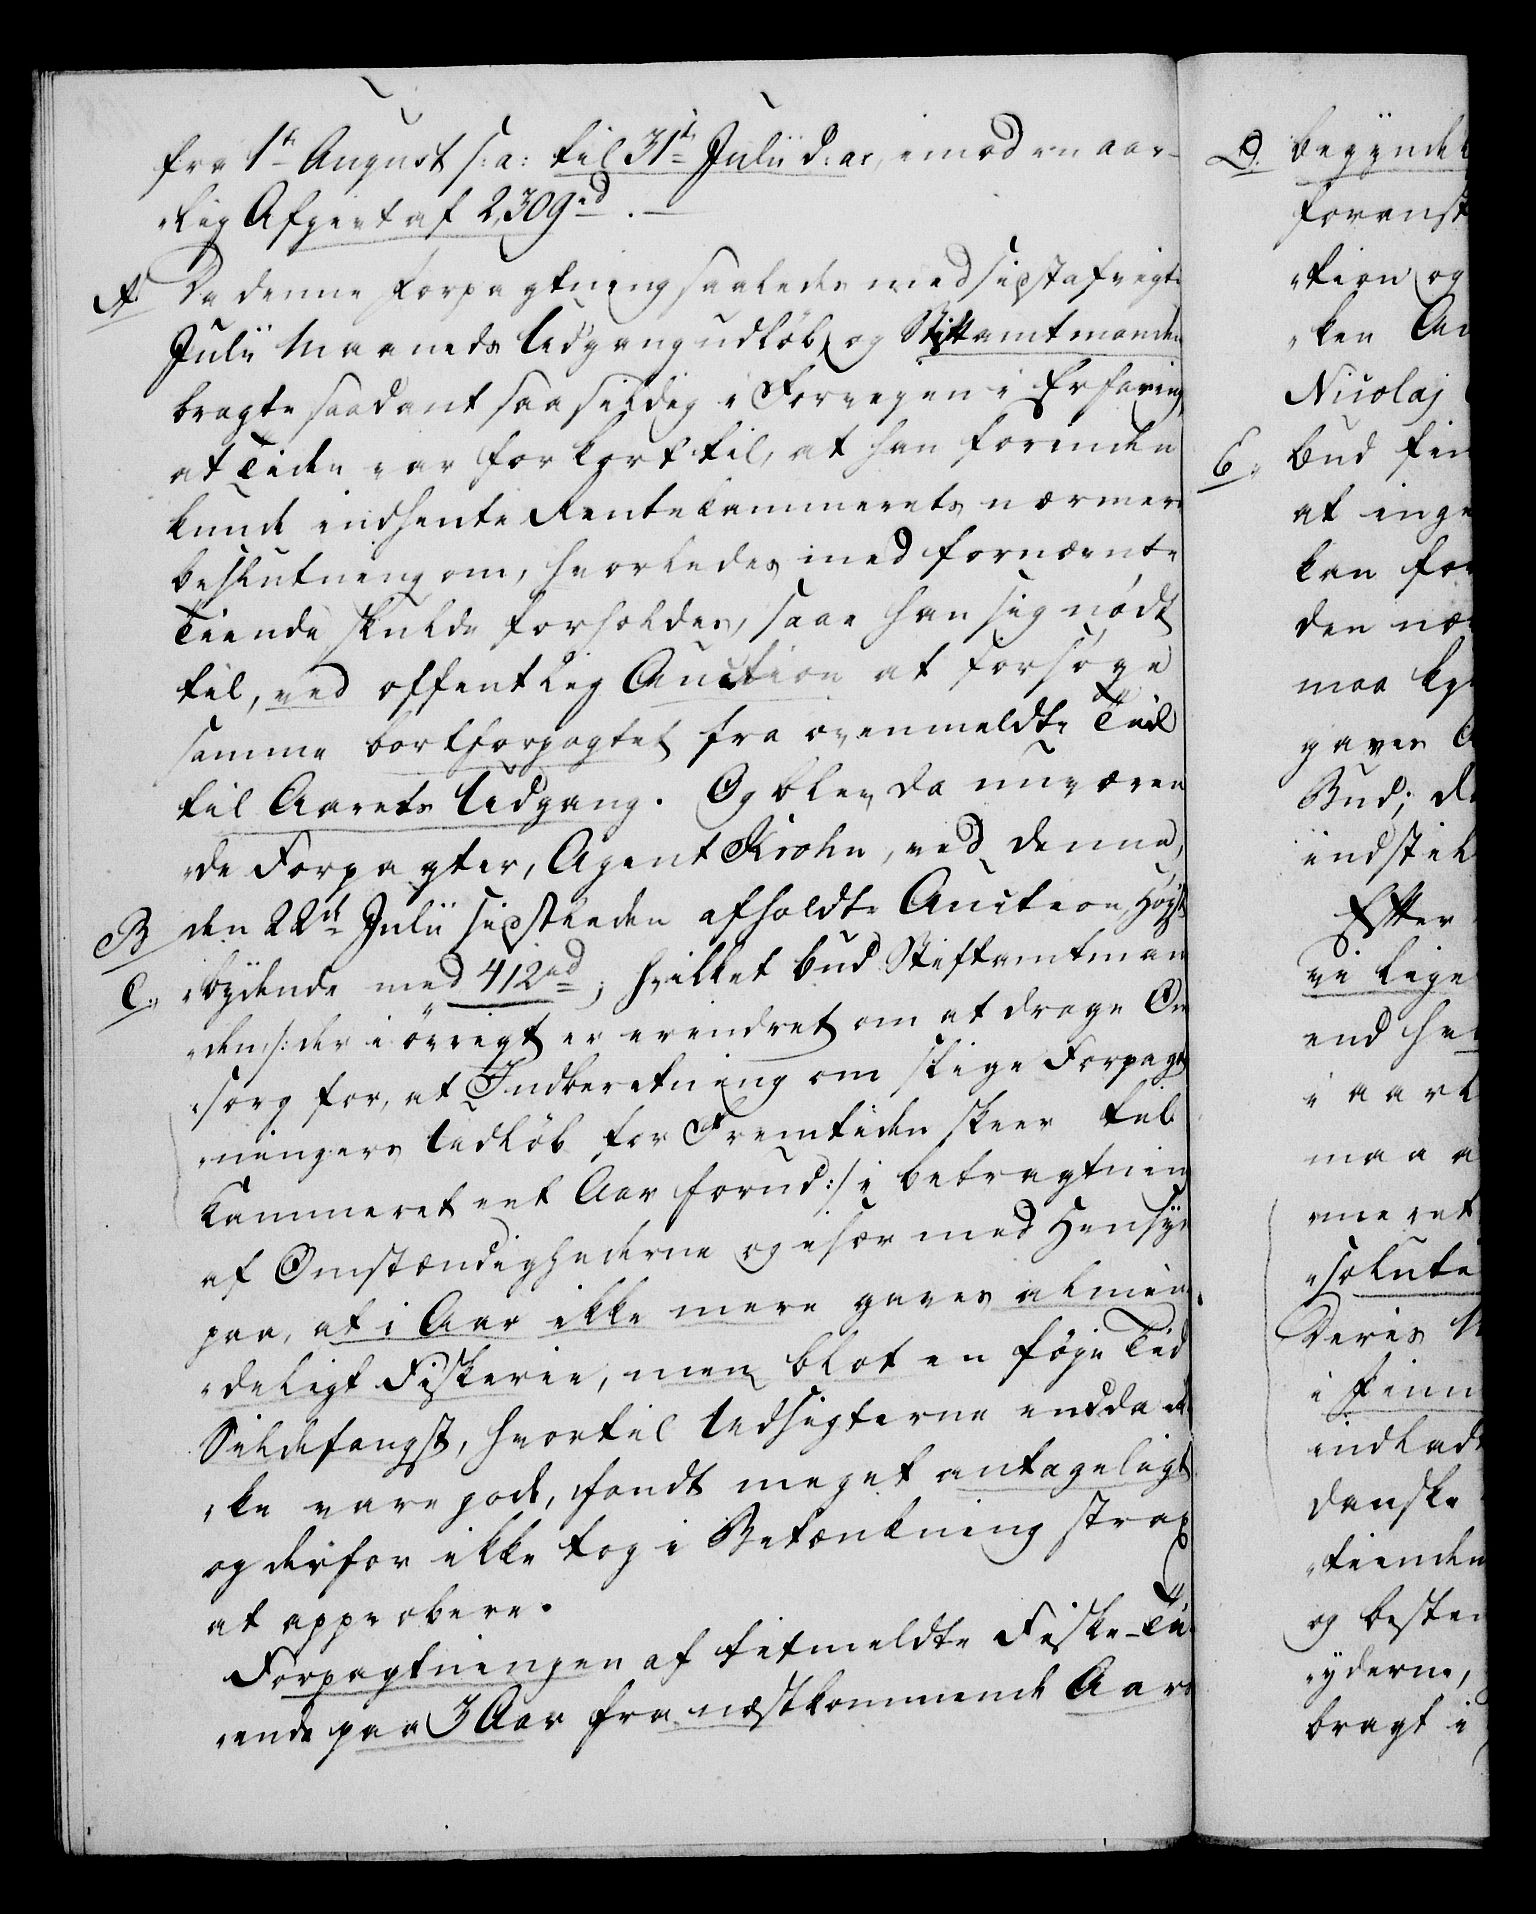 fra 1ste August s: a: til 31te Julii d: ar, imod en aar-
„lig Afgivt af 2,309 rd. —
A. Da denne Forpagtning saaledes med sidstafvigte
Julii Maaneds Udgang udløb, og Stiftamtmanden
bragte saadant saa sildig i Forvejen i Erfaring,
at Tiden var for kort til, at han forinden
kunde indhente Rentekammerets nærmere
beslutning om, hvorledes med fornævnte
Tiende skulde forholdes, saae han sig nødt
til, ved offentlig Auction at forsøge
samme bortforpagtet fra ovenmeldte Tid
til Aarets Udgang. Og blev da nuværen
„de Forpagter, Agent Krohn, ved denne,
B den 22de Julii sidstleden afholdte Auction, Høyst
C., „bydende med 412 rd; hvilket bud Stiftamtman
„den /: der i øvrigt er erindret om at drage Om
„sorg for, at Indberetning om slige Forpagt
„ningers Udløb for Fremtiden skeer til
Kammeret eet Aar forud :/ i betragtning
af Omstændighederne og især med Hensyn
paa, at i Aar ikke mere gaves almin
„deligt Fiskerie, men blot en føje Tid
Sildefangst, hvortil Udsigterne endda ik
„ke vare gode, fandt meget antageligt
og derfor ikke tog i Betænkning strax
at approbere.
Forpagtningen af titmeldte Fiske-Ti
„ende paa 3 Aar fra næstkommende Aars
D. begynde
foranst
„tion og
„ken Au
Nicolaj
E., bud fin
at inge
kan for
den næ
maa
gaves
Bud; d
indstil
Efter
vi lige
end he
i aarl
maa a
„meret
„solute
Deres
i Finm
indlad
danske
„tienden
og beste
„yderne,
bragt i